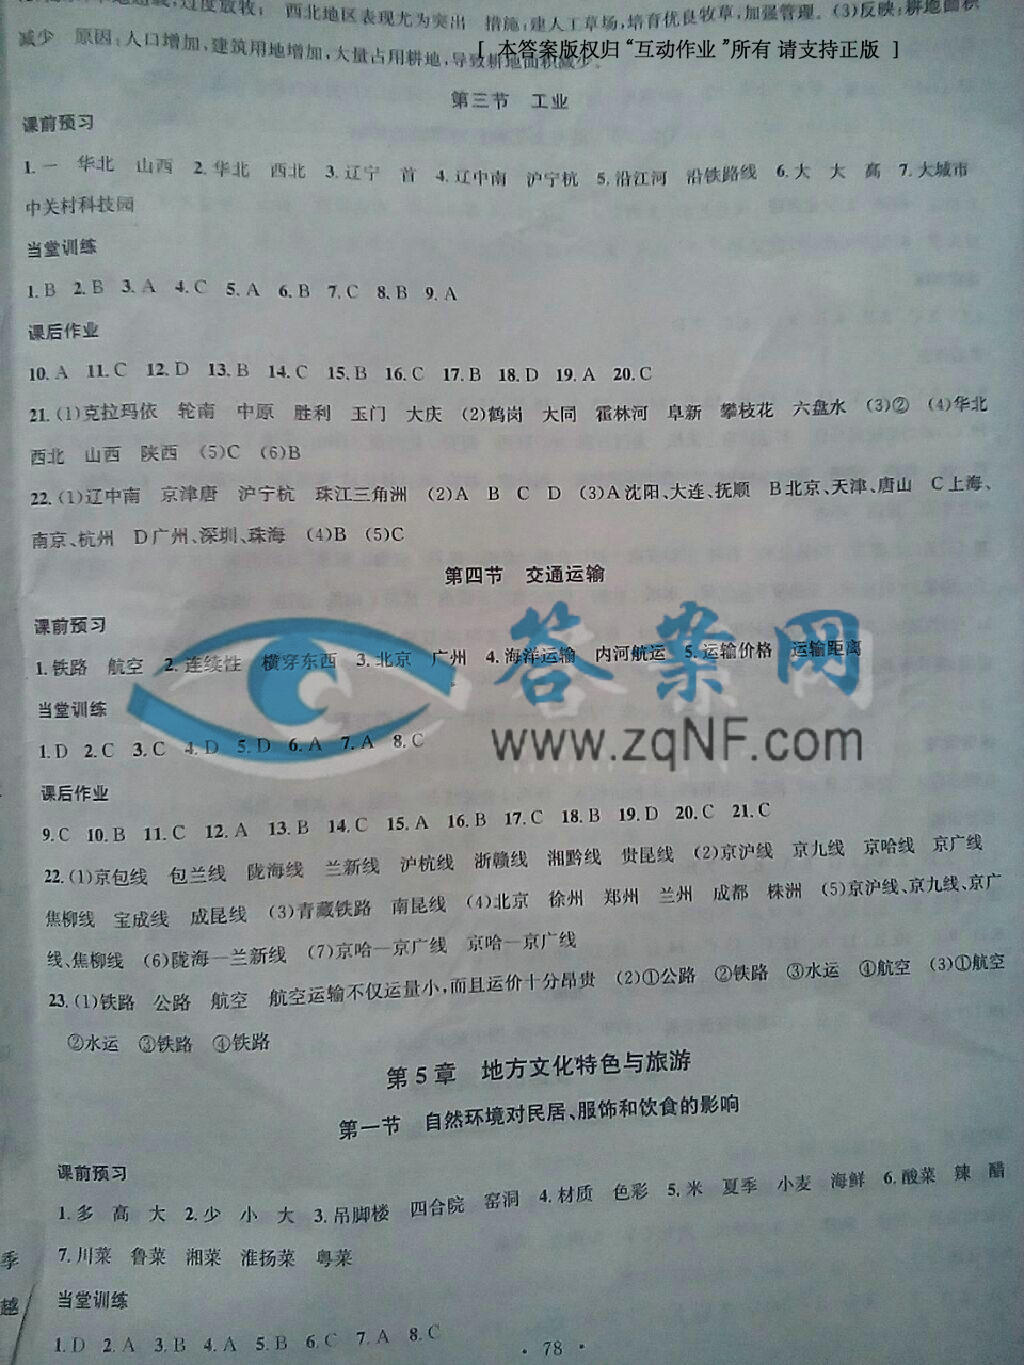 过度放牧; 西北地区表现尤为突出 措施:建人工草场,培育优良牧草,加强管理。(3)反映:耕地面积
减少 原因:人口增加,建筑用地增加,大量占用耕地,导致耕地面积减少。
[ 本答案版权归“互动作业”所有 请支持正版 ]
第三节 工业
课前预习
1.一 华北 山西 2.华北 西北 3.辽宁 首 4.辽中南 沪宁杭 5.沿江河 沿铁路线 6.大 大 高 7.大城市
中关村科技园
当堂训练
1.B 2.B 3.A 4.C 5.A 6.B 7.C 8.B 9.A
课后作业
10.A 11.C 12.D 13.B 14.C 15.B 16.C 17.B 18.D 19.A 20.C
21.(1)克拉玛依 轮南 中原 胜利 玉门 大庆 (2)鹤岗 大同 霍林河 阜新 攀枝花 六盘水 (3)② (4)华北
西北 山西 陕西 (5)C (6)B
22.(1)辽中南 京津唐 沪宁杭 珠江三角洲 (2)A B C D (3)A沈阳、大连、抚顺 B北京、天津、唐山 C上海、
南京、杭州 D广州、深圳、珠海 (4)B (5)C
第四节 交通运输
课前预习
1.铁路 航空 2.连续性 横穿东西 3.北京 广州 4.海洋运输 内河航运 5.运输价格 运输距离
答案网
www.zqNF.com
当堂训练
1.D 2.C 3.C 4.D 5.D 6.A 7.A 8.C
课后作业
9.C 10.B 11.C 12.A 13.B 14.C 15.A 16.B 17.C 18.B 19.D 20.C 21.C
22.(1)京包线 包兰线 陇海线 兰新线 沪杭线 浙赣线 湘黔线 贵昆线 (2)京沪线 京九线 京哈线 京广线
焦柳线 宝成线 成昆线 (3)青藏铁路 南昆线 (4)北京 徐州 郑州 兰州 成都 株洲 (5)京沪线、京九线、京广
线、焦柳线 (6)陇海—兰新线 (7)京哈—京广线 京哈—京广线
23.(1)铁路 公路 航空 航空运输不仅运量小,而且运价十分昂贵 (2)①公路 ②铁路 ③水运 ④航空 (3)①航空
②水运 ③铁路 ④铁路
第5章 地方文化特色与旅游
第一节 自然环境对民居、服饰和饮食的影响
课前预习
1.多 高 大 2.少 小 大 3.吊脚楼 四合院 窑洞 4.材质 色彩 5.米 夏季 小麦 海鲜 6.酸菜 辣 醋
7.川菜 鲁菜 湘菜 淮扬菜 粤菜
季
越
当堂训练
1.D 2.A 3.B 4.A 5.B 6.C 7.A 8.C
· 78 ·